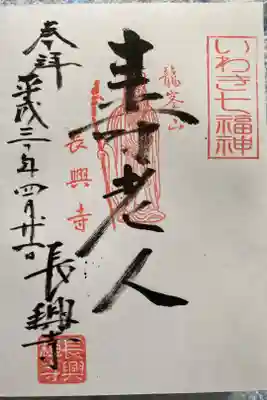 いわき七福神
龍峯山
寿老人
長興寺
奉拝
平成三十年四月廿一日
長興寺